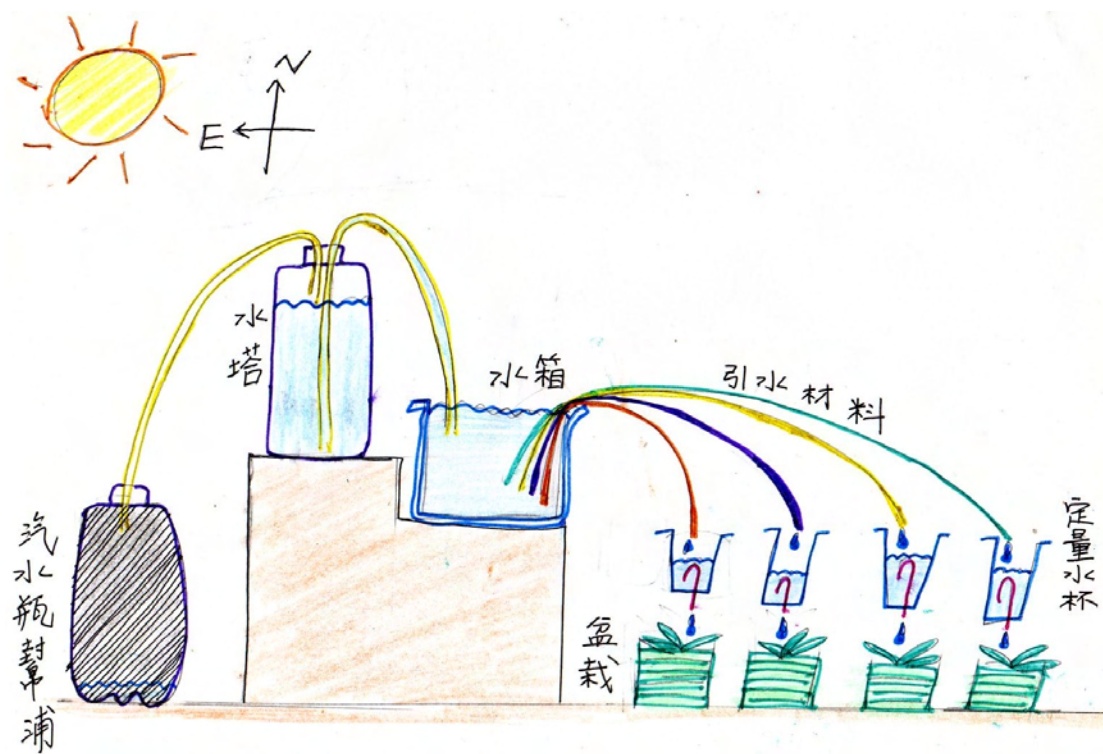 N
E
水塔
水箱
引水材料
汽水瓶幫浦
盆栽
定量水杯